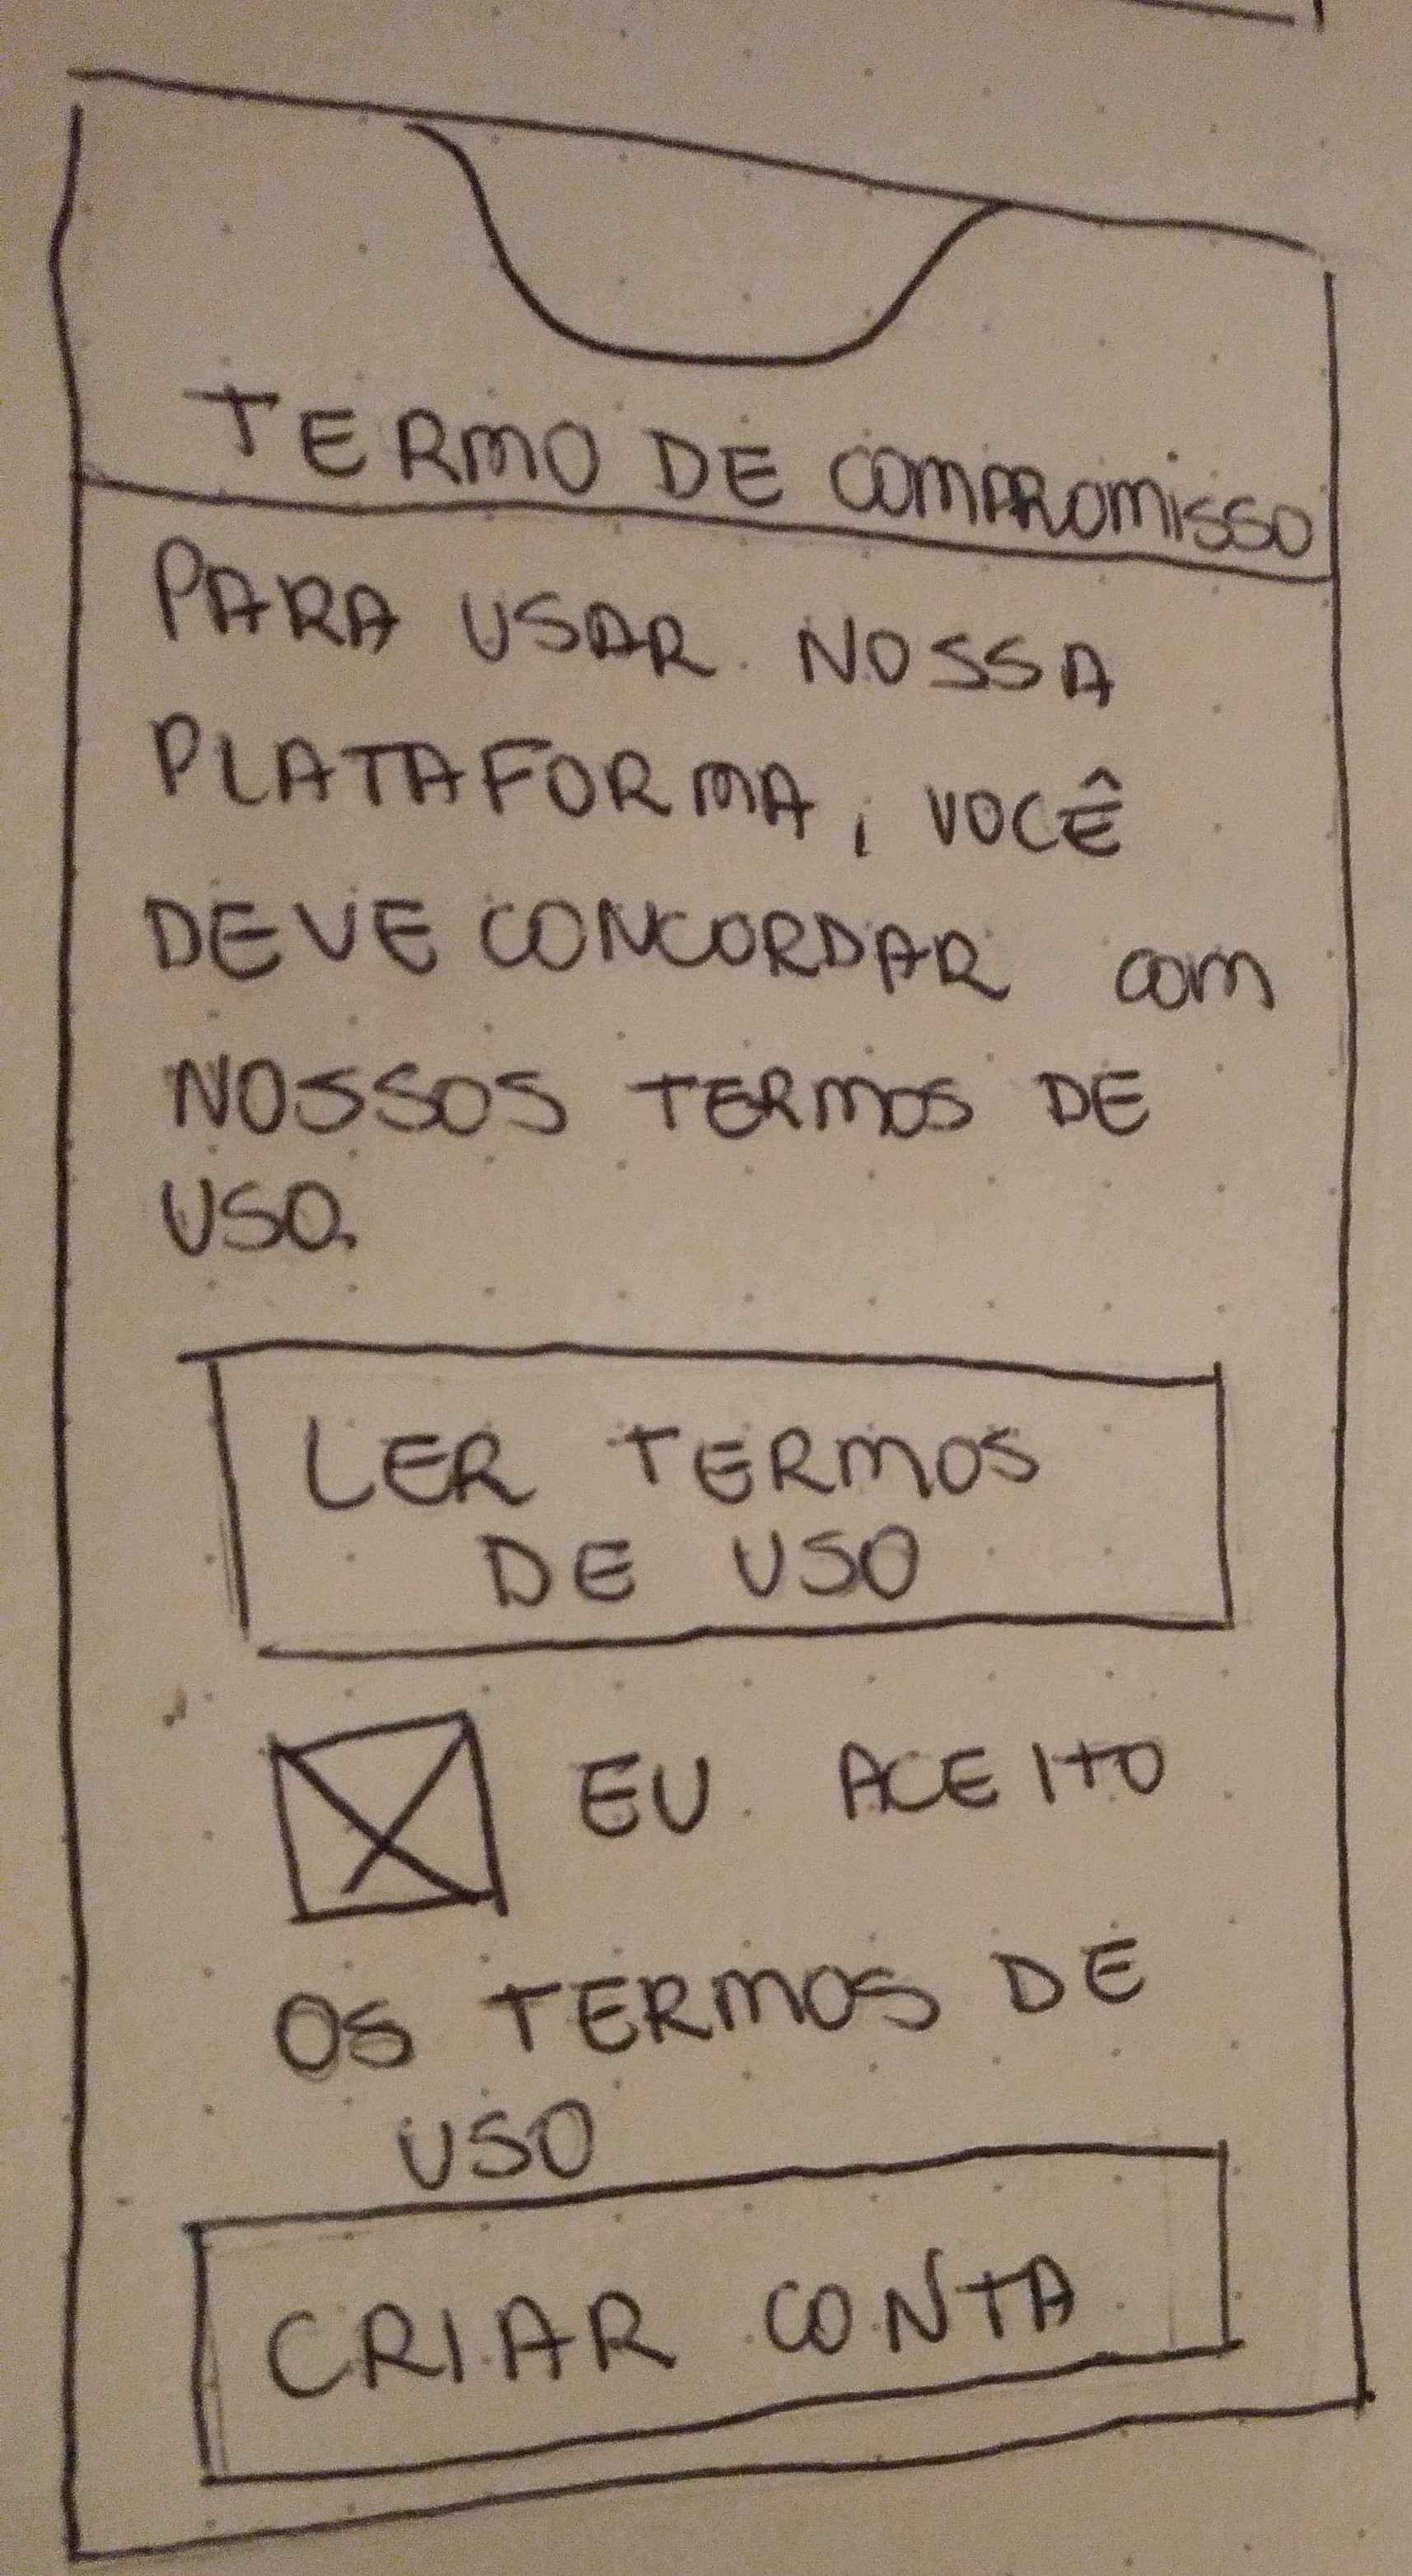 TERMO DE COMPROMISSO
PARA USAR NOSSA
PLATAFORMA, VOCÊ
DEVE CONCORDAR COM
NOSSOS TERMOS DE
USO.
LER TERMOS
DE USO
EU ACEITO
OS TERMOS DE
USO
CRIAR CONTA